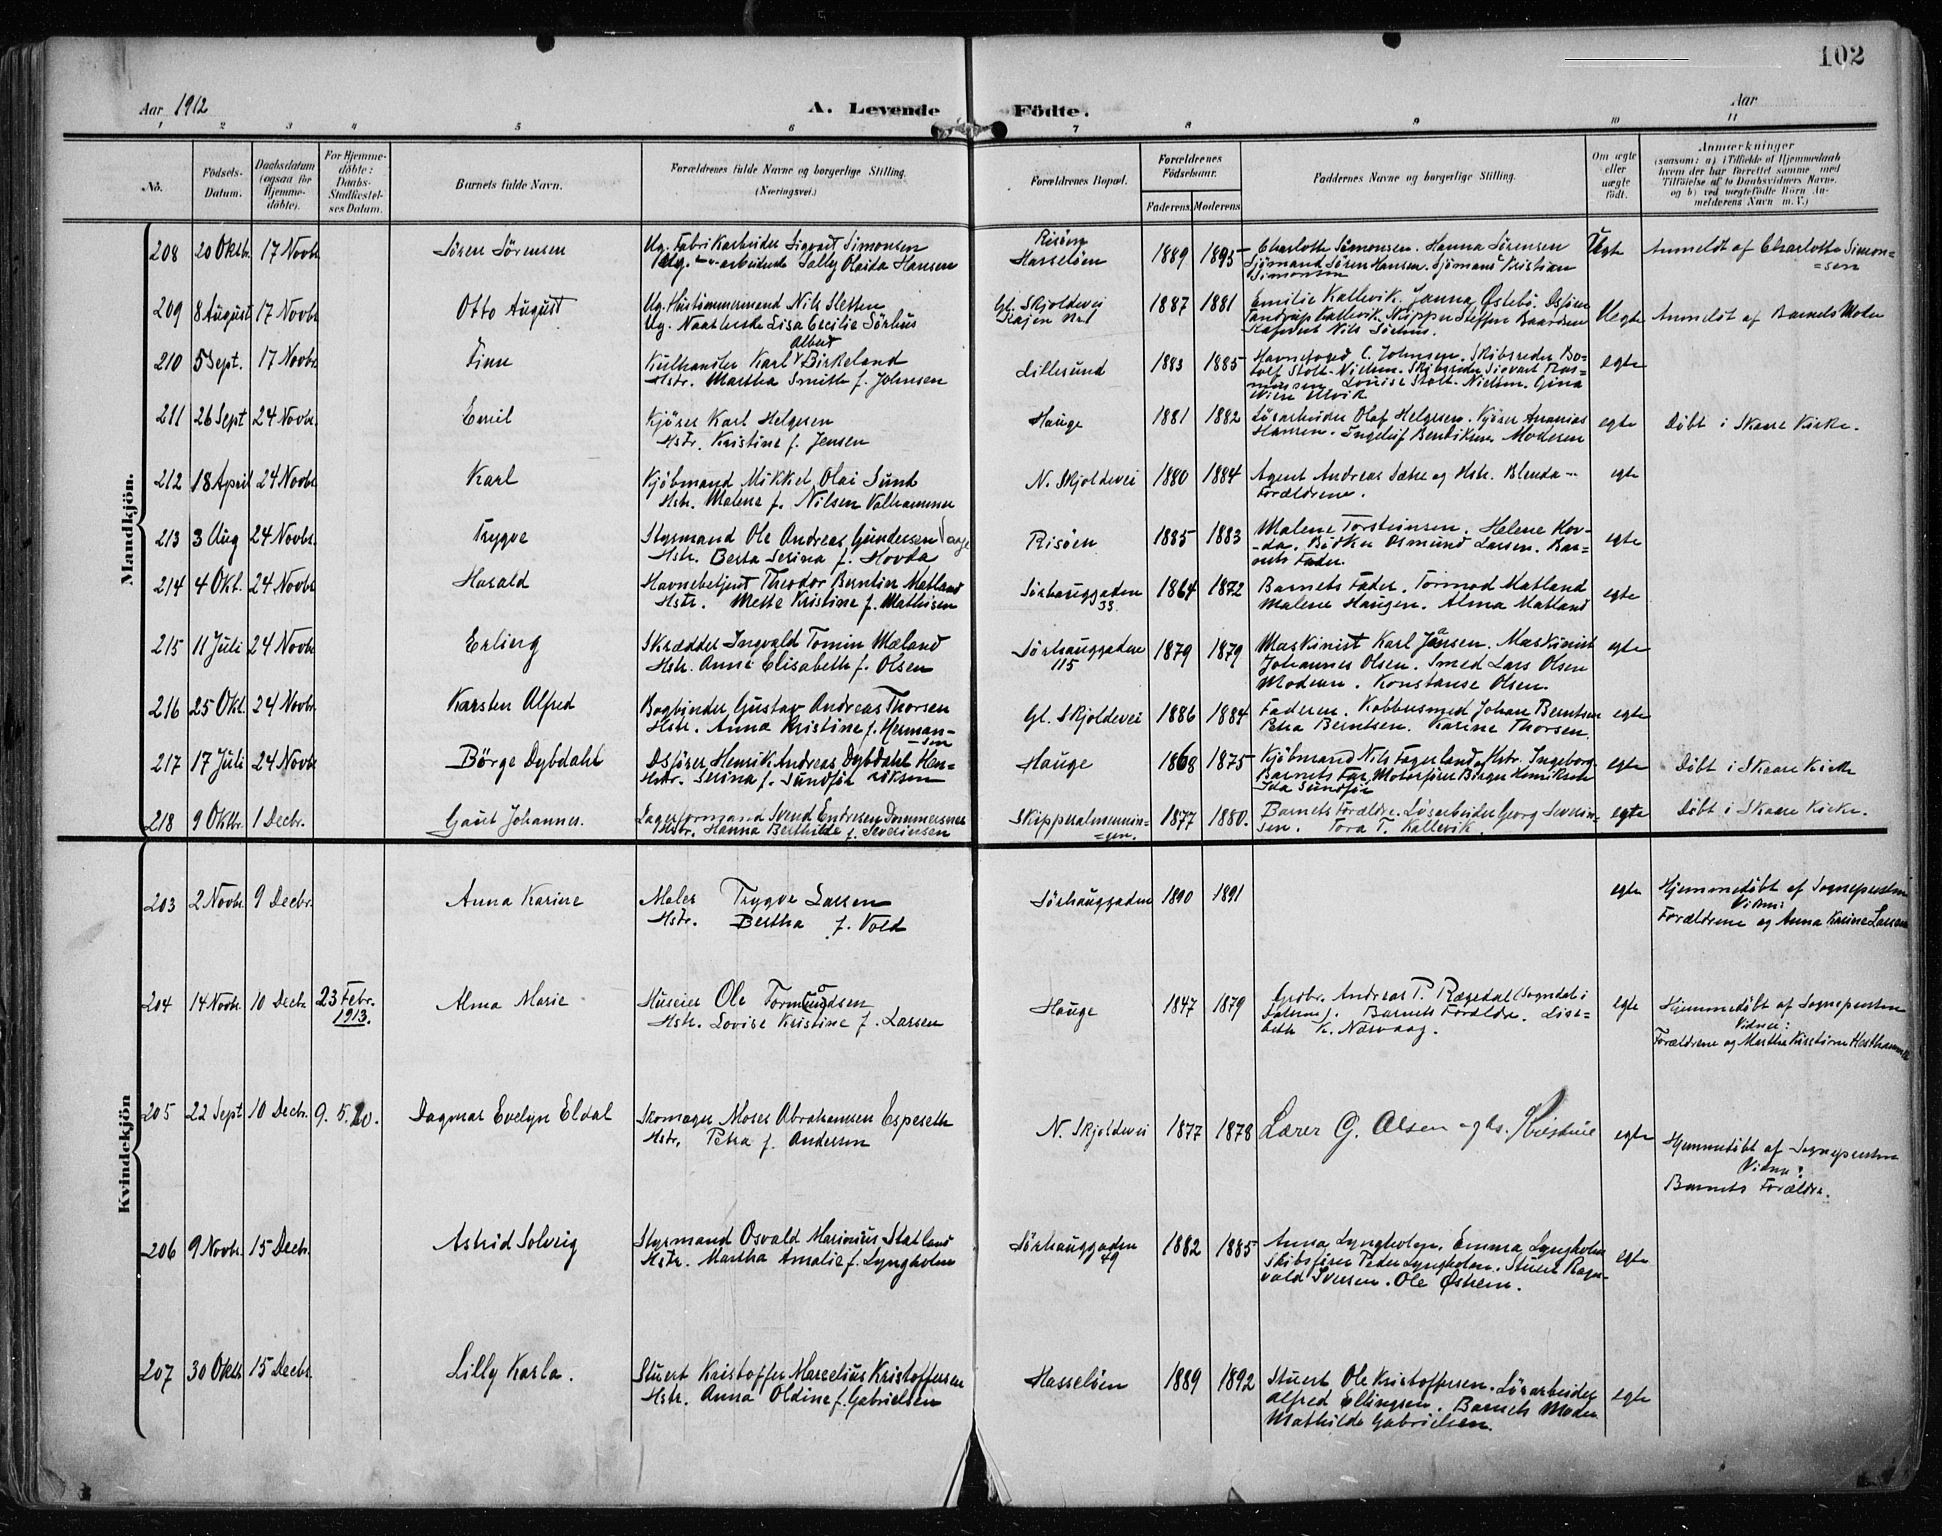 102
Aar 1912
A. Levende Födte.
Aar
1 2 3 4 5 6 7 8 9 10 11
No.
Födsels-
Datum.
Daabsdatum
(ogsaa for
Hjemme-
döbte).
For Hjemme-
döbte:
Daabs-
Stadfæstel-
ses Datum.
Barnets fulde Navn.
Forældrenes fulde Navne og borgerlige Stilling.
(Næringsvei.)
Forældrenes Bopæl.
Forældrenes
Födselsaar.
Faderens. Moderens.
Faddernes Navne og borgerlige Stilling.
Om ægte
eller
uægte
födt.
Anmærkninger
(saasom: a) i Tilfælde af Hjemmedaab
hvem der har forrettet samme, med
Tilföielse af to Daabsvidners Navne,
og b) ved uægtefödte Börn An-
melderens Navn m. V.)
Mandkjön.
208 20 Oktb. 17 Novbr. Sören Sörensen
Ug. Fabrikarbeider Sigvart Simonsen
Ug. -"- arbeiderske Sally Olaida Hansen
Risöen
Hasselöen
1889 1895
Charlotte Simonsen. Hanna Sörensen
Sjömand Sören Hansen. Sjömand Kristian
Simonsen
Uegte
Anmeldt af Charlotte Simon-
=sen
209 8 August 17 Novbr Otto August
Ug. Hustömmermand Nils Sletten
Ug. Lisa Cecilie Sörhus
Gl. Skjoldevei
1887 1881
Emilie Kallevik. Janna Østebö.
Kallevik. Skipper Steffen Baardsen
Nils Sörhus.
Uegte
Anmeldt af Barnets Moder
210 5 Sept. 17 Novbr Finn
Albert
Kulhandler Karl v Birkeland
Hstr. Martha Smith f. Johnsen
Lillesund
1883 1885
Havnefoged C. Johnsen. Skibsreder Bo-
Stolt-Nielsen. Skibsreder Sigvart Ras-
mussen. Louise Stolt-Nielsen. Gina
Ulvik
egte
211 26 Sept 24 Novbr. Emil
Kjörer Karl Helgesen
Hstr. Kristine f. Jensen
Hauge
1881 1882
Lösarbeider Olaf Helgesen. Kjörer Ananias
Hansen. Ingelif Bendiksen. Moderen
egte
Döbt i Skaare Kirke.
212 18 April 24 Novbr. Karl
Kjöbmand Mikkel Olai Sund
Hstr. Malene f. Nilsen Valhammer
N. Skjoldevei
1880 1884
Agent Andreas Sætre og Hstr. Blenda -
Forældrene.
egte
213 3 Aug 24 Novbr. Trygve
Styrmand Ole Andreas Gundersen Vaage
Hstr. Berta Serina f. Hovda
Risöen
1885 1883
Malene Torsteinsen. Helene Hov-
-da. Bödker Osmund Larsen. Bar=
nets Fader.
egte
214 4 Okt. 24 Novbr Harald
Havnebetjent Theodor Berntier Matland
Hstr. Mette Kristine f. Mathisen
Sörhauggaden
33.
1864 1872
Barnets Fader. Tormod Matland
Malene Haugen. Alma Matland
egte
215 11 Juli 24 Novbr Erling
Skrædder Ingvald Tomin Mæland
Hstr. Anne Elisabeth f. Olsen
Sörhauggaden
115
1879 1879
Maskinist Karl Jansen. Maskinist
Johannes Olsen. Smed Lars Olsen
Moderen. Konstanse Olsen.
egte
216 25 Okt. 24 Novbr. Karsten Alfred
Bogbinder Gustav Andreas Thorsen
Hstr. Anna Kristine f. Herman-
-sen
Gl. Skjoldevei
1886 1884
Faderen. Kobbersmed Johan Berntsen
Petra Berntsen. Karine Thorsen.
egte
217 17 Juli 24 Novbr Börge Dybdahl
Dsförer Henrik Andreas Dybdahl Hen=
Hstr. Serina f. Sundför riksen
Hauge
1868 1875
Kjöbmand Nils Fagerland og Hstr. Ingeborg.
Barnets Far. Motorförer Birger Henriksen
Ida Sundför
egte
Döbt i Skaare Kirke
218 9 Oktbr. 1 Decbr. Gaut Johannes.
Lagerformand Svend Endresen Dommersnes
Hstr. Hanna Berthilde f. Severinsen
Skipperalmennin=
=gen.
1877 1880.
Barnets Forældre. Lösarbeider Georg Severin=
sen. Tora T. Kallevik.
egte
Döbt i Skaare Kirke.
Kvindekjön
203 2 Novbr. 9 Decbr. Anna Karine
Maler Trygve Larsen
Hstr. Bertha f. Vold
Sörhauggaden
1890 1891
egte
Hjemmedöbt af Sognepresten
Vidner:
Forældrene og Anna Karine Larsen
204 14 Novbr. 10 Decbr. 23 Febr.
1913.
Alma Marie
Huseier Ole Tormundsen
Hstr. Lovise Kristine f. Larsen
Hauge
1847 1879
Grdbr. Andreas P. Rægedal (Sogndal i
Dalerne). Barnets Forældre. Lisa=
beth K. Nærvaag.
egte
Hjemmedöbt af Sognepresten
Vidner:
Forældrene og Martha Kristine Hesthammer
205 22 Sept. 10 Decbr. 9. 5. 20. Dagmar Evelyn Eldal
Skomager Moses Abrahamsen Espeseth
Hstr. Petra f. Andersen
N. Skjoldevei
1877 1878
Lærer G. Olsen og hs. Kristine
egte
Hjemmedöbt af Sognepresten
Vidner:
Barnets Forældre.
206 9 Novbr. 15 Decbr. Astrid Solveig
Styrmand Osvald Marinius Statland
Hstr. Martha Amalie f. Lyngholm
Sörhauggaden
49
1882 1885
Anna Lyngholm. Emma Lyngholm
Skibsförer Peder Lyngholm. Stuert Ragn-
vald Iversen. Ole Østrem.
egte
207 30 Oktb. 15 Decbr. Lilly Karla.
Stuert Kristoffer Marcelius Kristoffersen
Hstr. Anna Oldine f. Gabrielsen
Hasselöen
1889 1892
Stuert Ole Kristoffersen. Lösarbeider
Alfred Ellingsen. Barnets Moder
Mathilde Gabrielsen.
egte